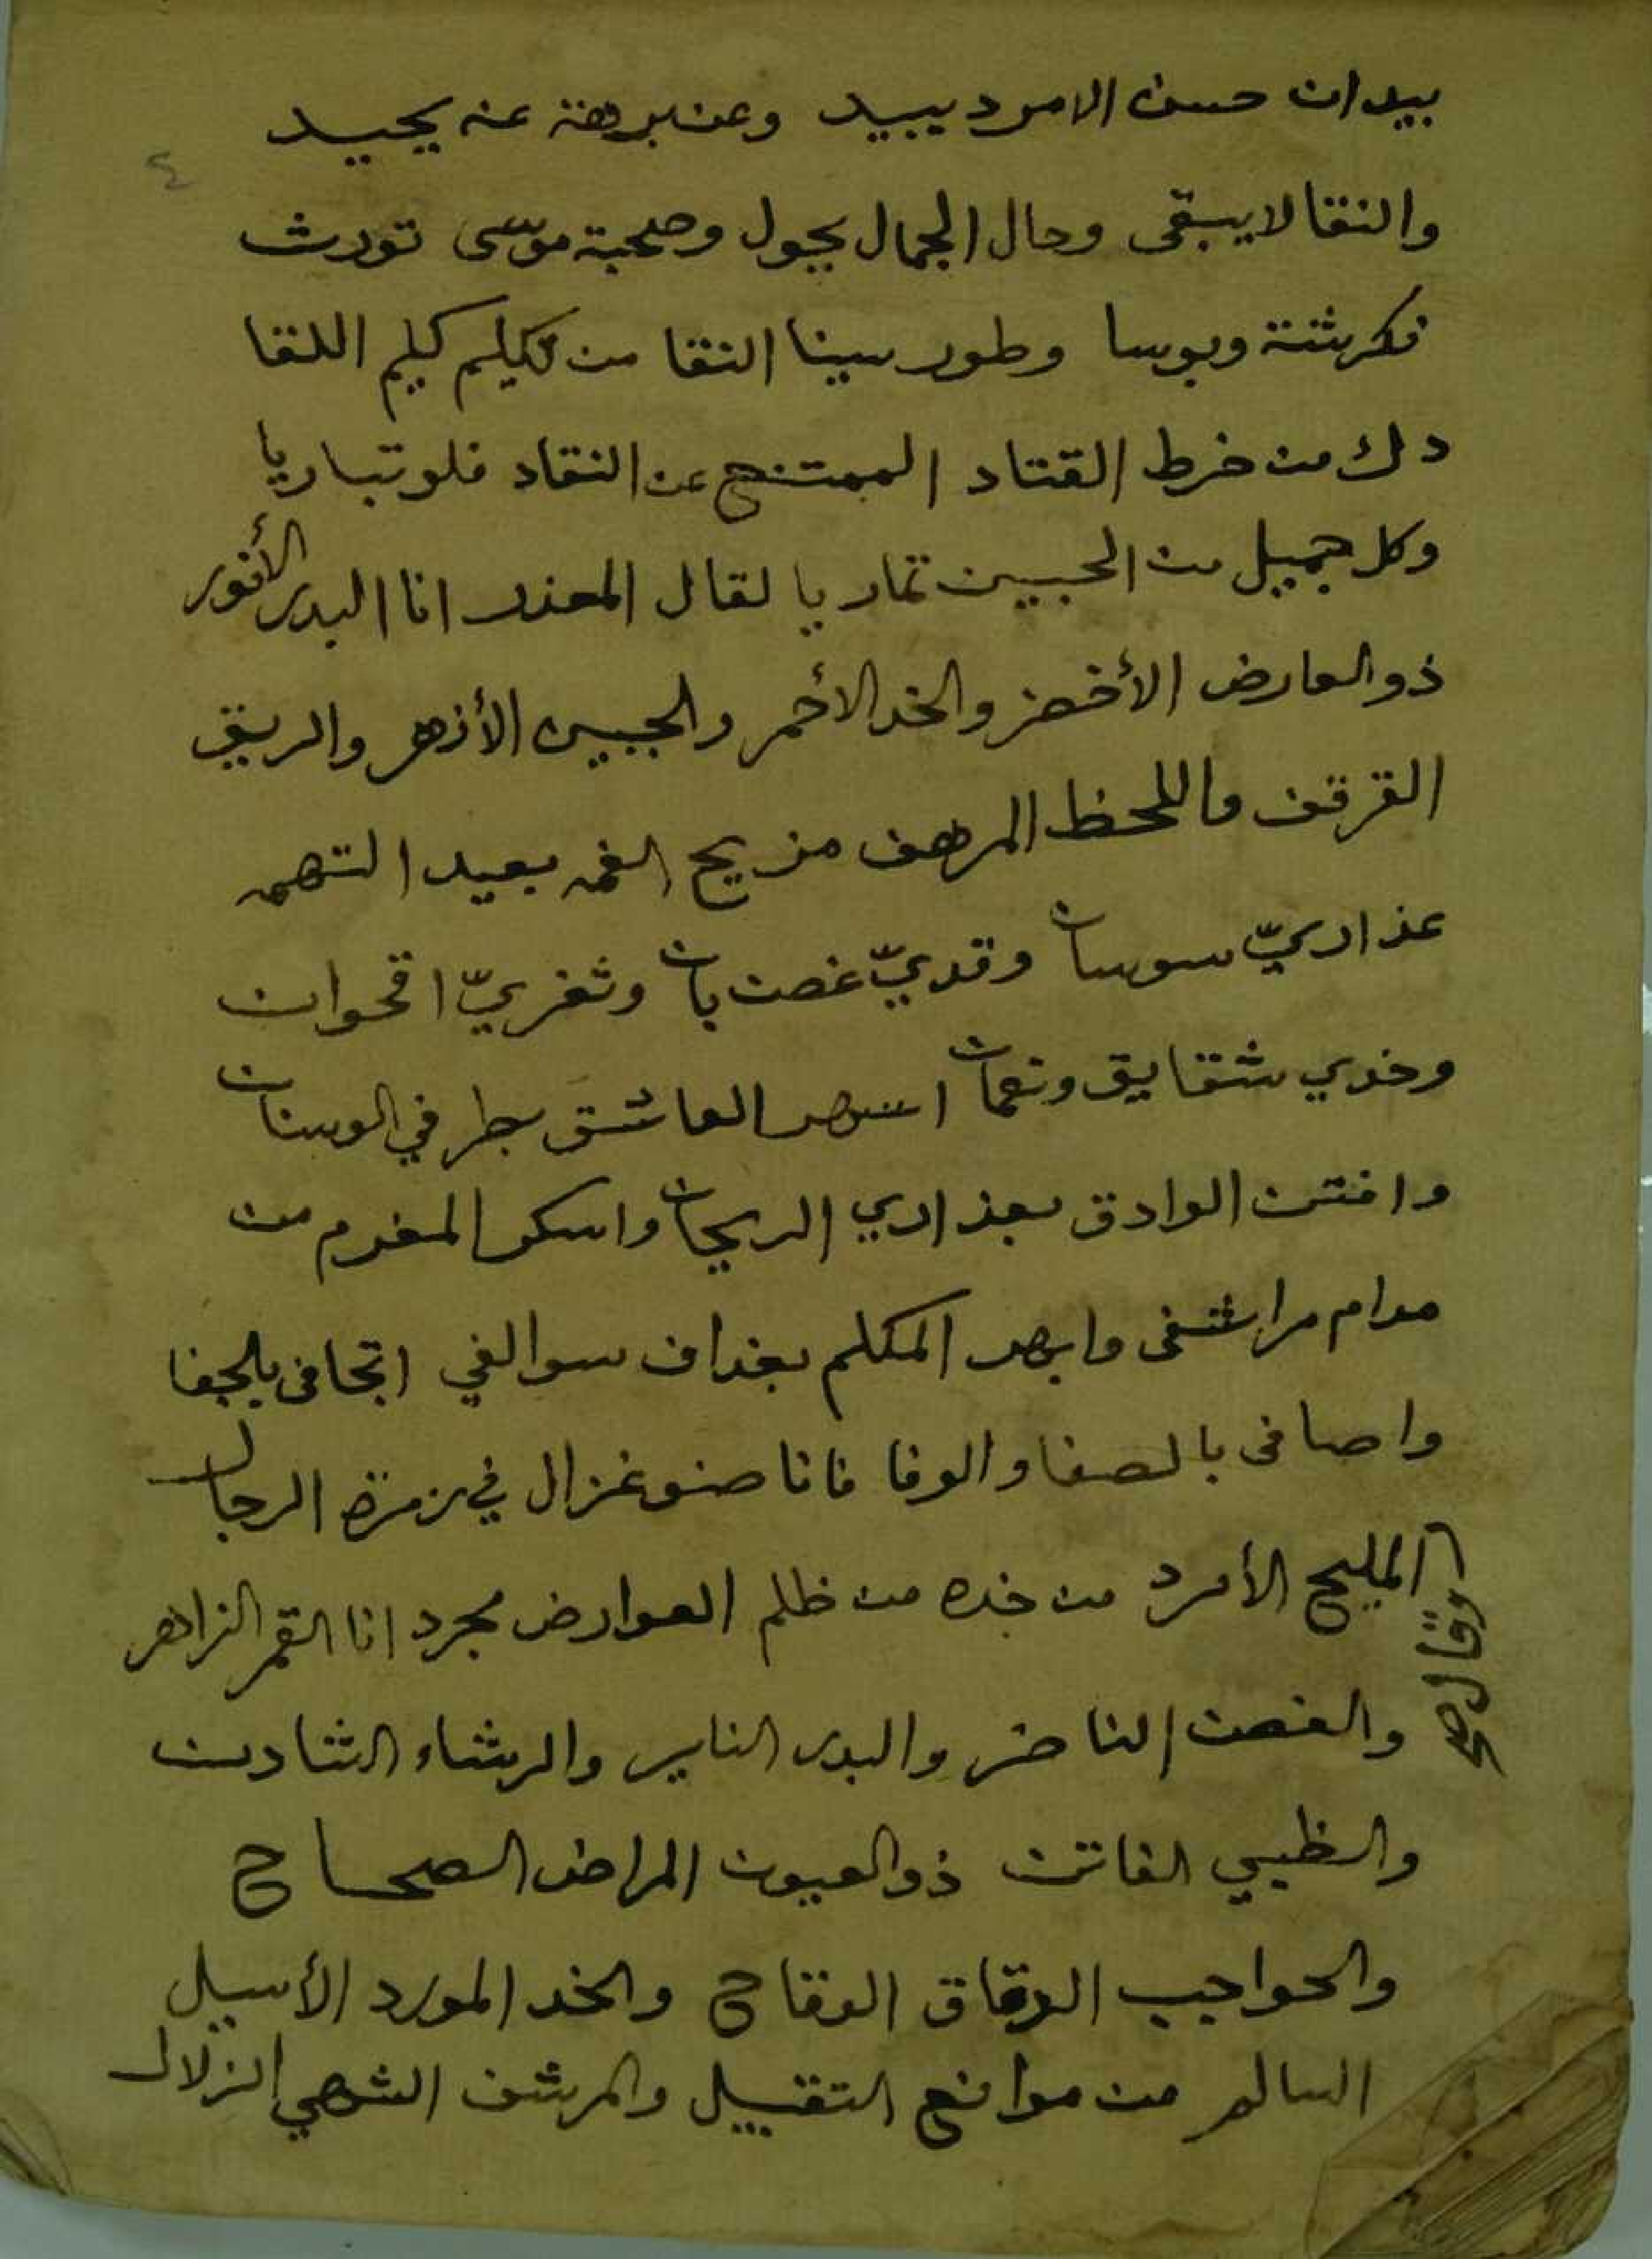 بيد ان حسن الامرد يبيد وعن برهة عنه يحيد
٤
والنقا لا يبقى وحال الجمال يحول وصحبة موسى تورث
نكرشة وبوسا وطور سينا النقا من تكليم كليم اللقا
دك من خرط القتاد الممتنع عن النقاد فلو تباريا
وكل جميل من الحبيبين تماريا لقال المعذر انا البدر الأنور
ذو العارض الأخضر والخد الأحمر والجبين الأزهر والريق
القرقف واللحظ المرهف مزيح الغمه بعيد التهمه
عذاريّ سوسان وقديّ غصن بان وثغريّ اقحوان
وخدي شقايق ونعمان اسهر العاشق بطرفي الوسنان
وافتن الوادق بعذاري الريحان واسكر المغرم من
مدام مراشفى وابهر المكلم بغداف سوالفي اتجافى بالجفا
واصافى بالصفا والوفا فانا صنو غزال في زمرة الرجال
وقال صح
المليح الأمرد من خده من ظلم العوارض مجرد انا القمر الزاهر
والغصن الناضر والبدر الناير والرشاء الشادن
والظبي الفاتن ذو العيون المراض الصحاح
والحواجب الرقاق الوقاح والخد المورد الأسيل
السالم من موانع التقبيل والمرشف الشهي الزلال